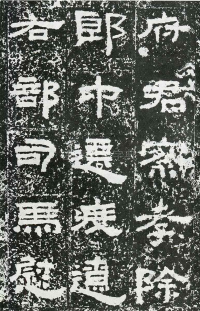 府君察孝除
郎中遷度遼
右部司馬慰